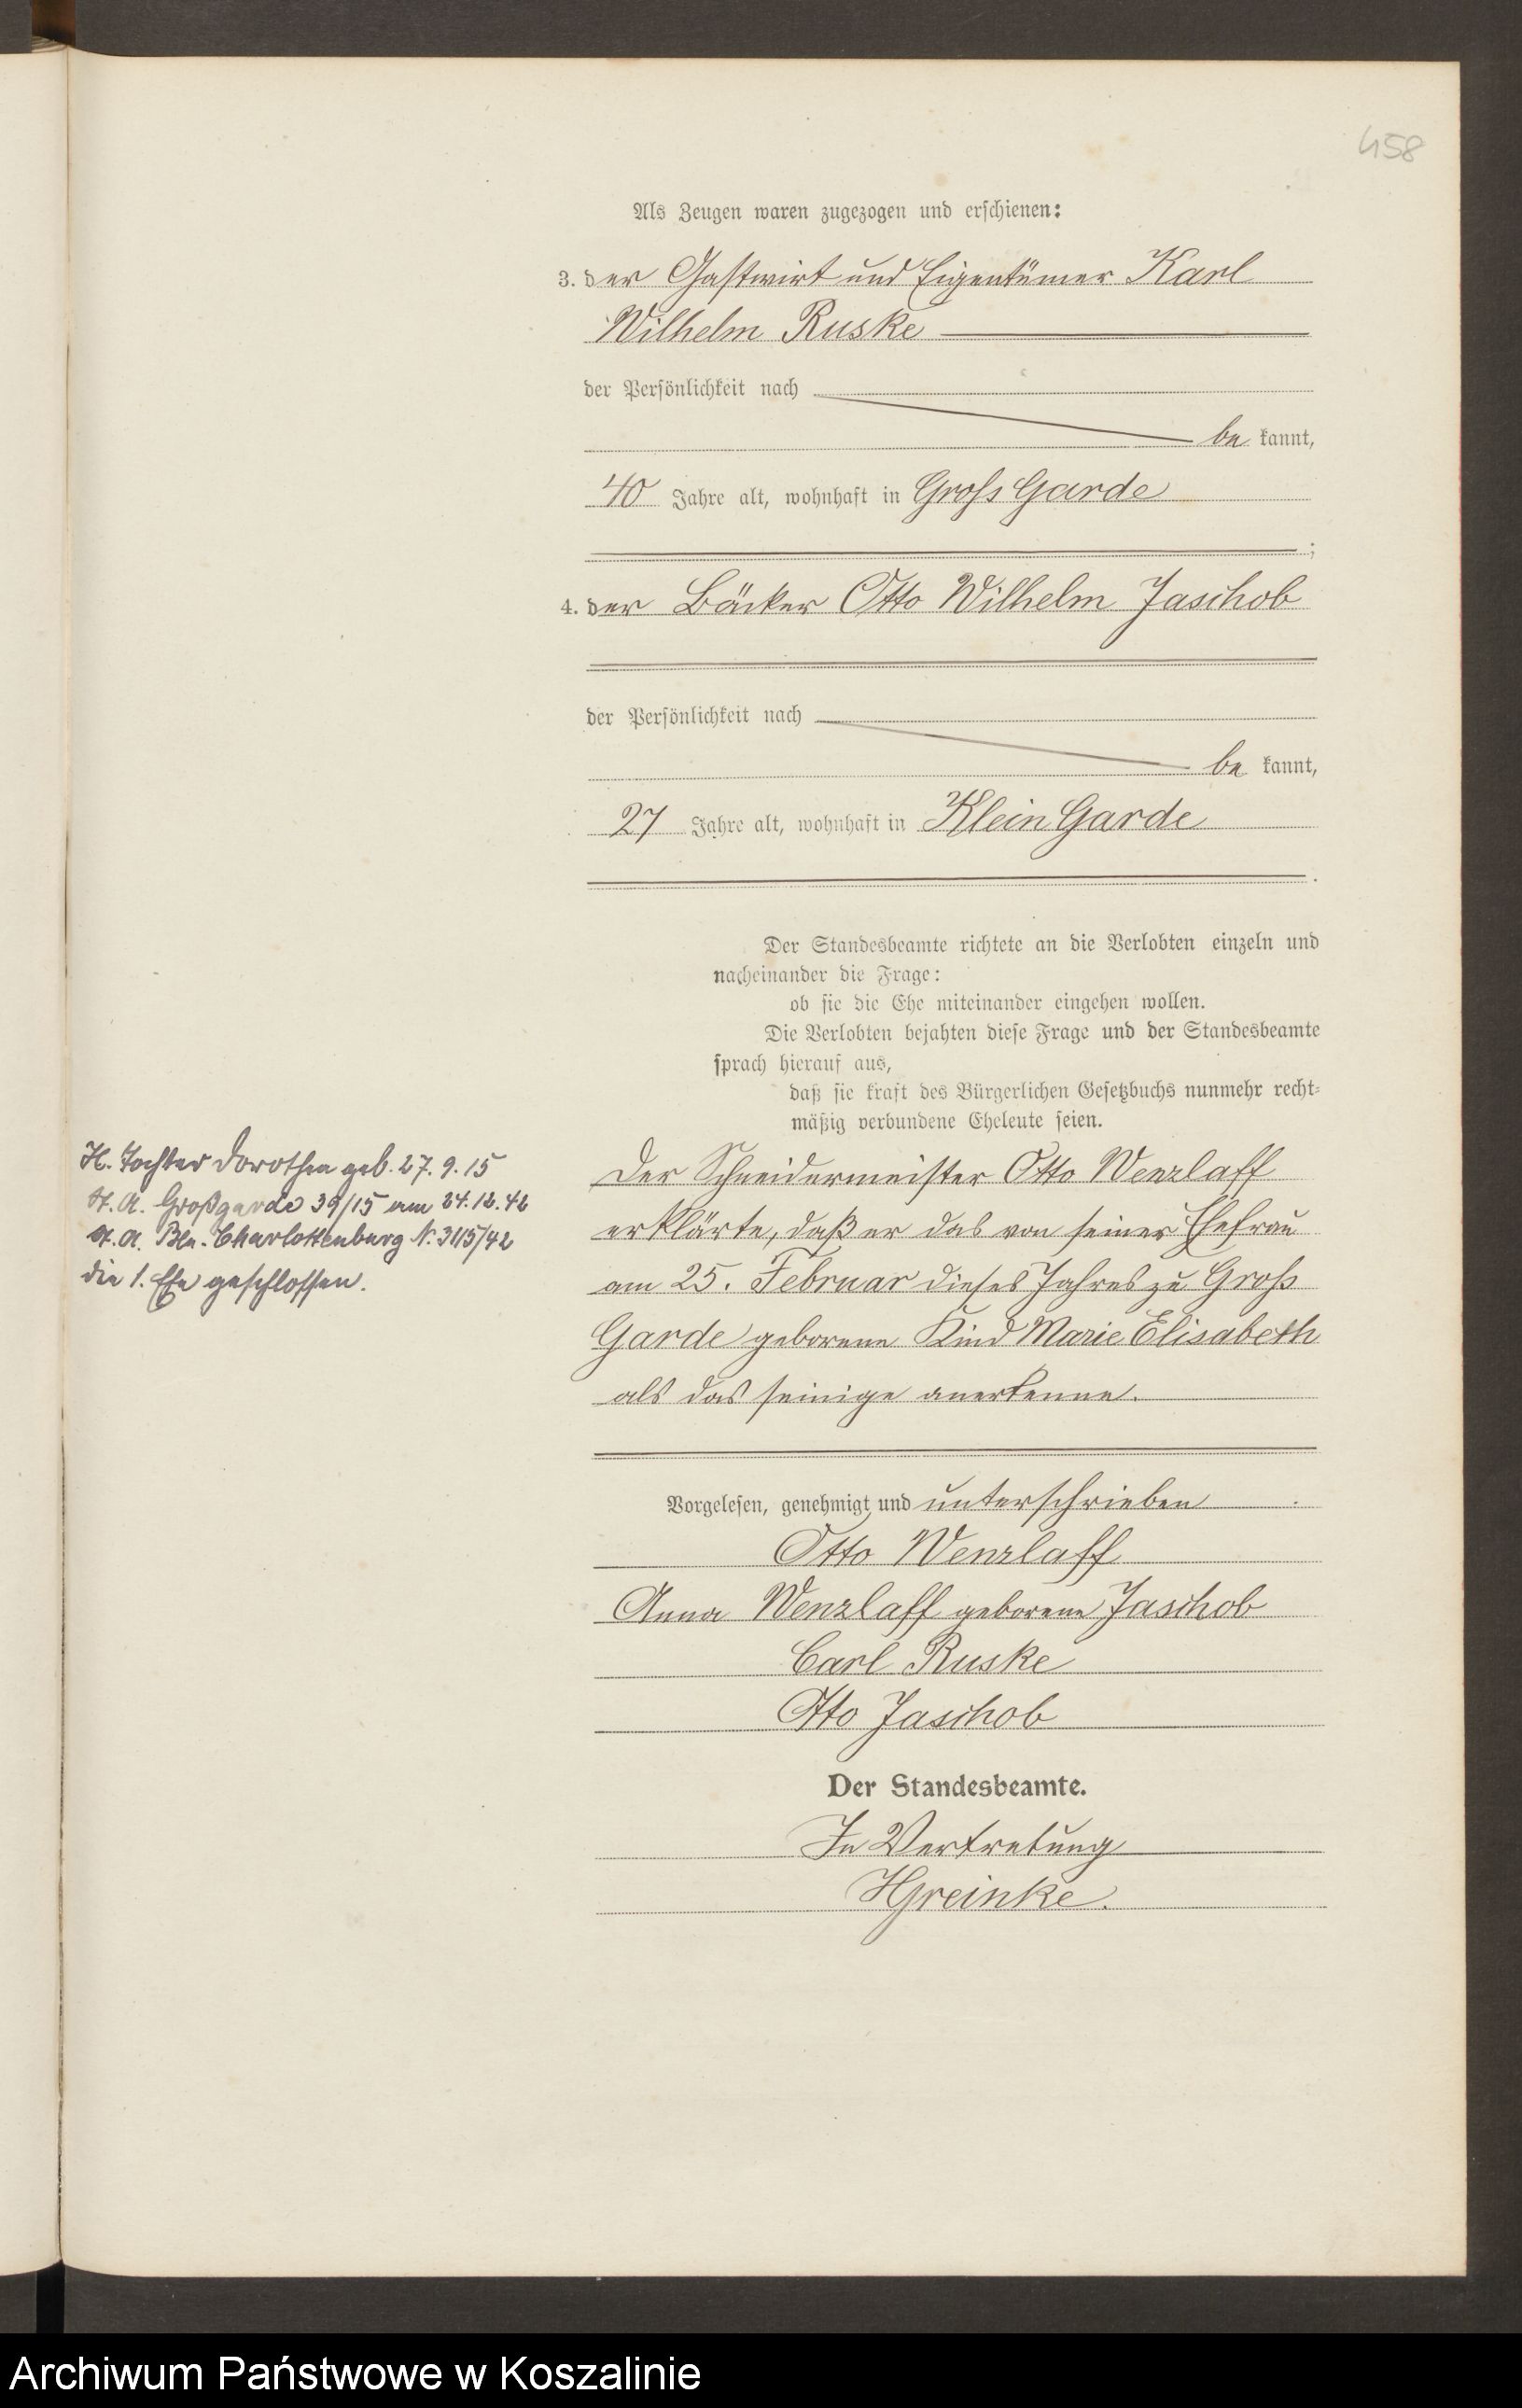 458
Als Zeugen waren zugezogen und erschienen:
3. der Gastwirt und Eigentümer Karl
Wilhelm Ruske
der Persönlichkeit nach
be kannt,
40 Jahre alt, wohnhaft in Gross Garde
;
4. der Bäcker Otto Wilhelm Jaschob
der Persönlichkeit nach
be kannt,
27 Jahre alt, wohnhaft in Klein Garde
.
Der Standesbeamte richtete an die Verlobten einzeln und
nacheinander die Frage:
ob sie die Ehe miteinander eingehen wollen.
Die Verlobten bejahten diese Frage und der Standesbeamte
sprach hierauf aus,
daß sie kraft des Bürgerlichen Gesetzbuchs nunmehr recht-
mäßig verbundene Eheleute seien.
H. Tochter Dorothea geb. 27.9.15
St. A. Großgarde 39/15 am 24.12.42
St. A. Bln. Charlottenburg N. 3115/42
die 1. Ehe geschlossen.
Der Schneidermeister Otto Wenzlaff
erklärte, daß er das von seiner Ehefrau
am 25. Februar dieses Jahres zu Gross
Garde geborene Kind Marie Elisabeth
als das seinige anerkenne.
Vorgelesen, genehmigt und unterschrieben.
Otto Wenzlaff
Anna Wenzlaff geborene Jaschob
Carl Ruske
Otto Jaschob
Der Standesbeamte.
In Vertretung
HGreinke.
Archiwum Państwowe w Koszalinie